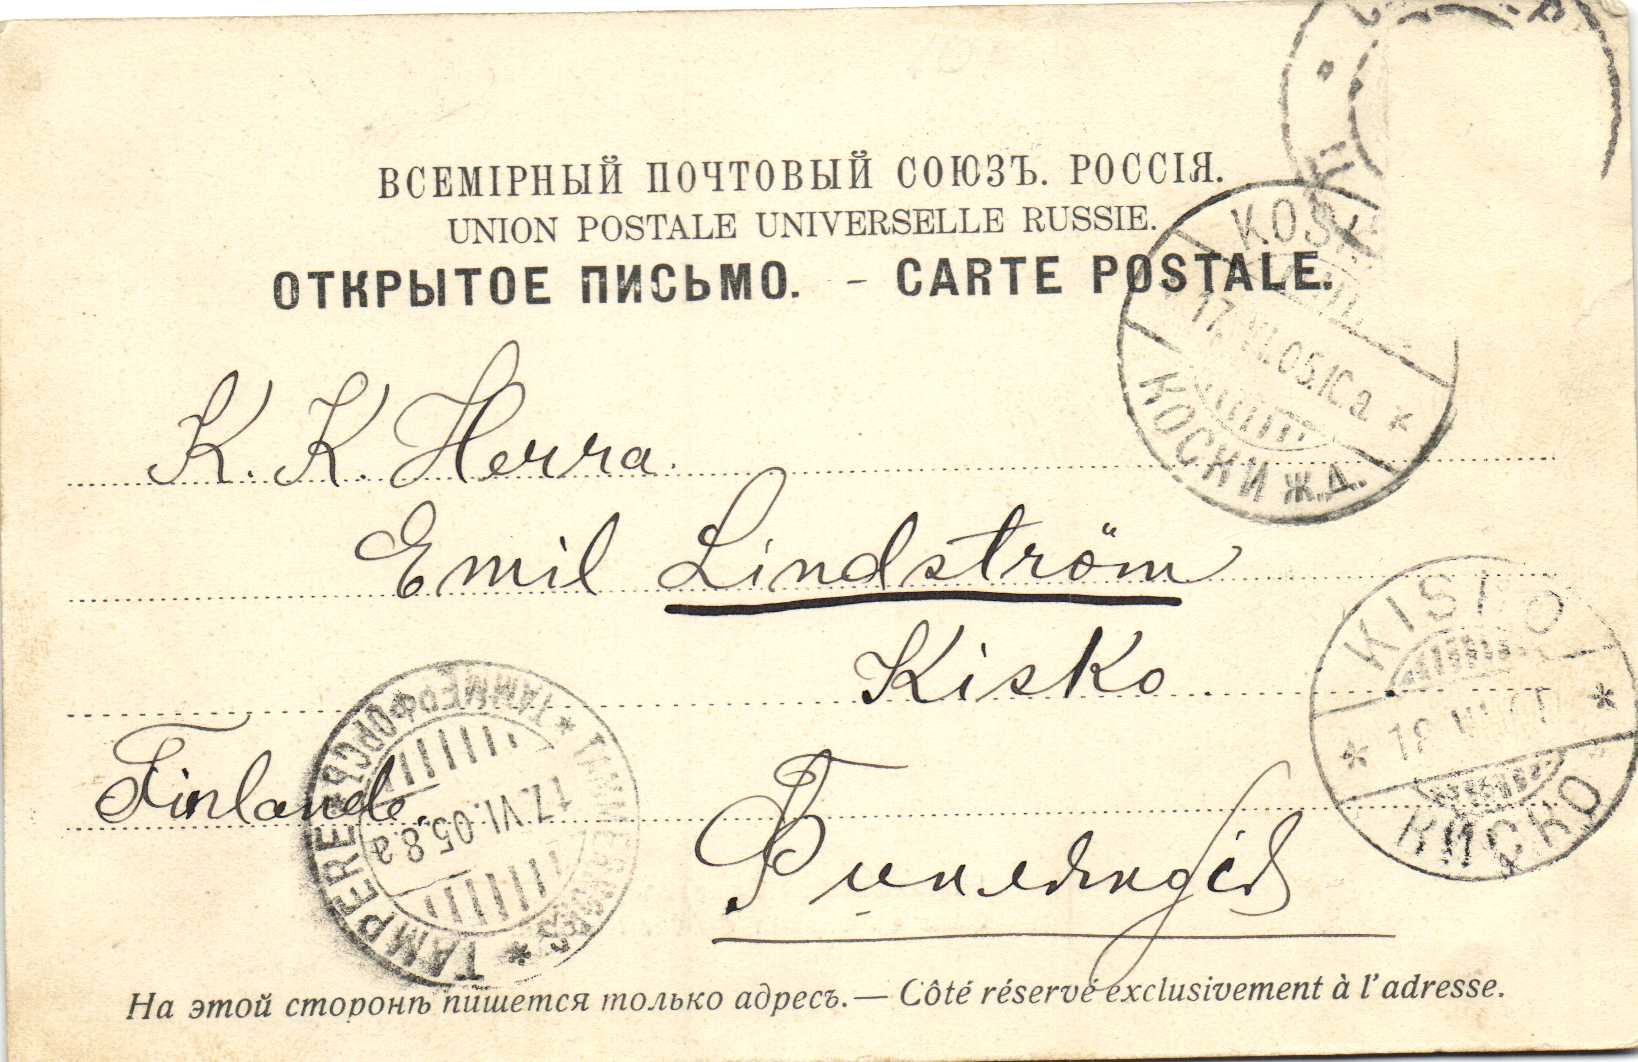 ВСЕМІРНЫЙ ПОЧТОВЫЙ СОЮЗЪ. РОССІЯ.
UNION POSTALE UNIVERSELLE RUSSIE.
ОТКРЫТОЕ ПИСЬМО. - CARTE POSTALE.
17.VI.05.10a
КОСКИ Ж.Д.
K. K. Herra
Emil Lindström
Kisko
KISKO
КИСКО
Finlande.
TAMPERE * TAMMERFORS * ТАММЕРФОРСЪ
17.VI.05.8a
Финляндія
На этой сторонѣ пишется только адресъ.— Côté réservé exclusivement à l'adresse.